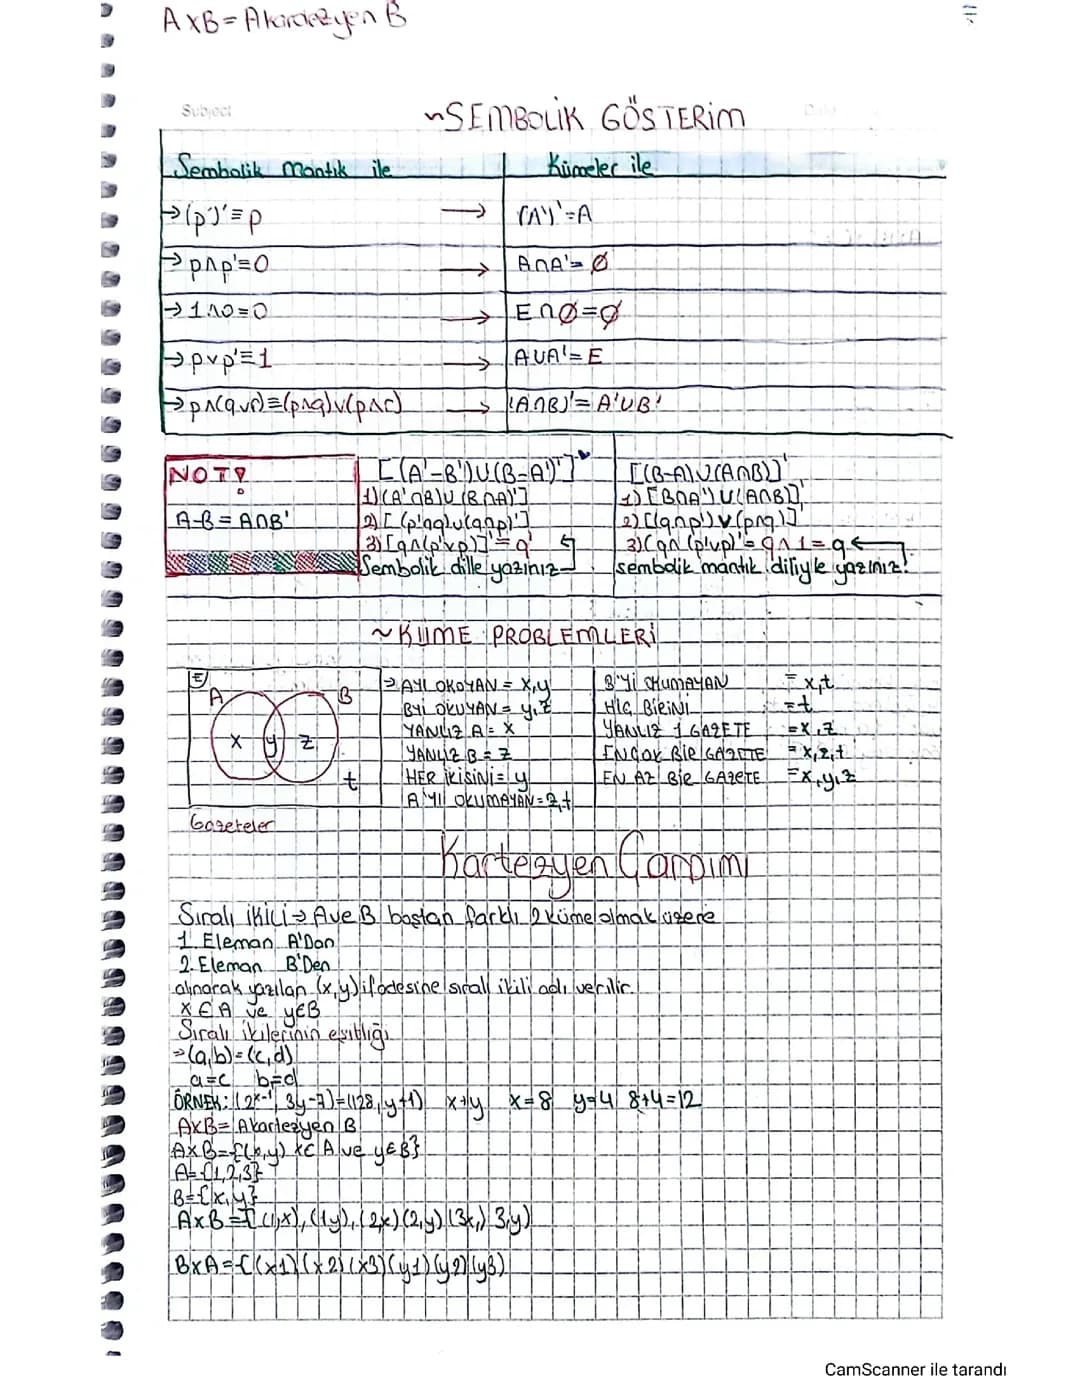 AxB = Akartezyen B
Subject
~SEMBOLİK GÖSTERİM
Sembolik Mantık ile
Kümeler ile
→(p')'≡p → (A')'=A
→p∧p'≡0 → A∩A'=∅
→1∧0=0 → E∩∅=∅
→p∨p'≡1 → A∪A'=E
→p∧(q∨r)≡(p∧q)∨(p∧r) → (A∩B)'=A'∪B'
NOT!
A-B=A∩B'
[(A'-B')∪(B-A')']'
1)(A'∩B)∪(B∩A)']
2)[(p'∧q)∨(q∧p)']
3)[q∧(p'∨p)]'≡q'
Sembolik dille yazınız
[(B-A)∪(A∩B)]'
1)[B∩A')∪(A∩B)]'
2)[(q∧p')∨(p∧q)]'
3)(q∧(p'∨p)'=q∧1=q
sembolik mantık diliyle yazınız!
~KÜME PROBLEMLERİ
E
A B
x y z
t
Gazeteler
→AYI OKOYAN = x,y
B'Yİ OKUYAN = y,z
YANLIZ A = x
YANLIZ B = z
HER İKİSİNİ = y
A'YI OKUMAYAN = z,t
B'Yİ OKUMAYAN = x,t
HİÇ BİRİNİ =t
YANLIZ 1 GAZETE =x,z
EN ÇOK BİR GAZETE =x,z,t
EN AZ BİR GAZETE =x,y,z
Kartezyen Çarpımı
Sıralı İkili→ A ve B boştan farklı 2 küme olmak üzere
1. Eleman A'Dan
2. Eleman B'Den
alınarak yazılan (x,y) ifadesine sıralı ikili adı verilir.
x∈A ve y∈B
Sıralı ikilerinin eşitliği
→(a,b)=(c,d)
a=c b=d
ÖRNEK: (2ˣ⁻¹, 3y-7)=(128,y+1) x+y x=8 y=4 8+4=12
AxB= Akartezyen B
AxB={(x,y) x∈A ve y∈B}
A={1,2,3}
B={x,y}
AxB={(1,x),(1y),(2x)(2,y)(3x,)3,y)
BxA={(x1)(x2)(x3)(y1)(y2)(y3)
CamScanner ile tarandı